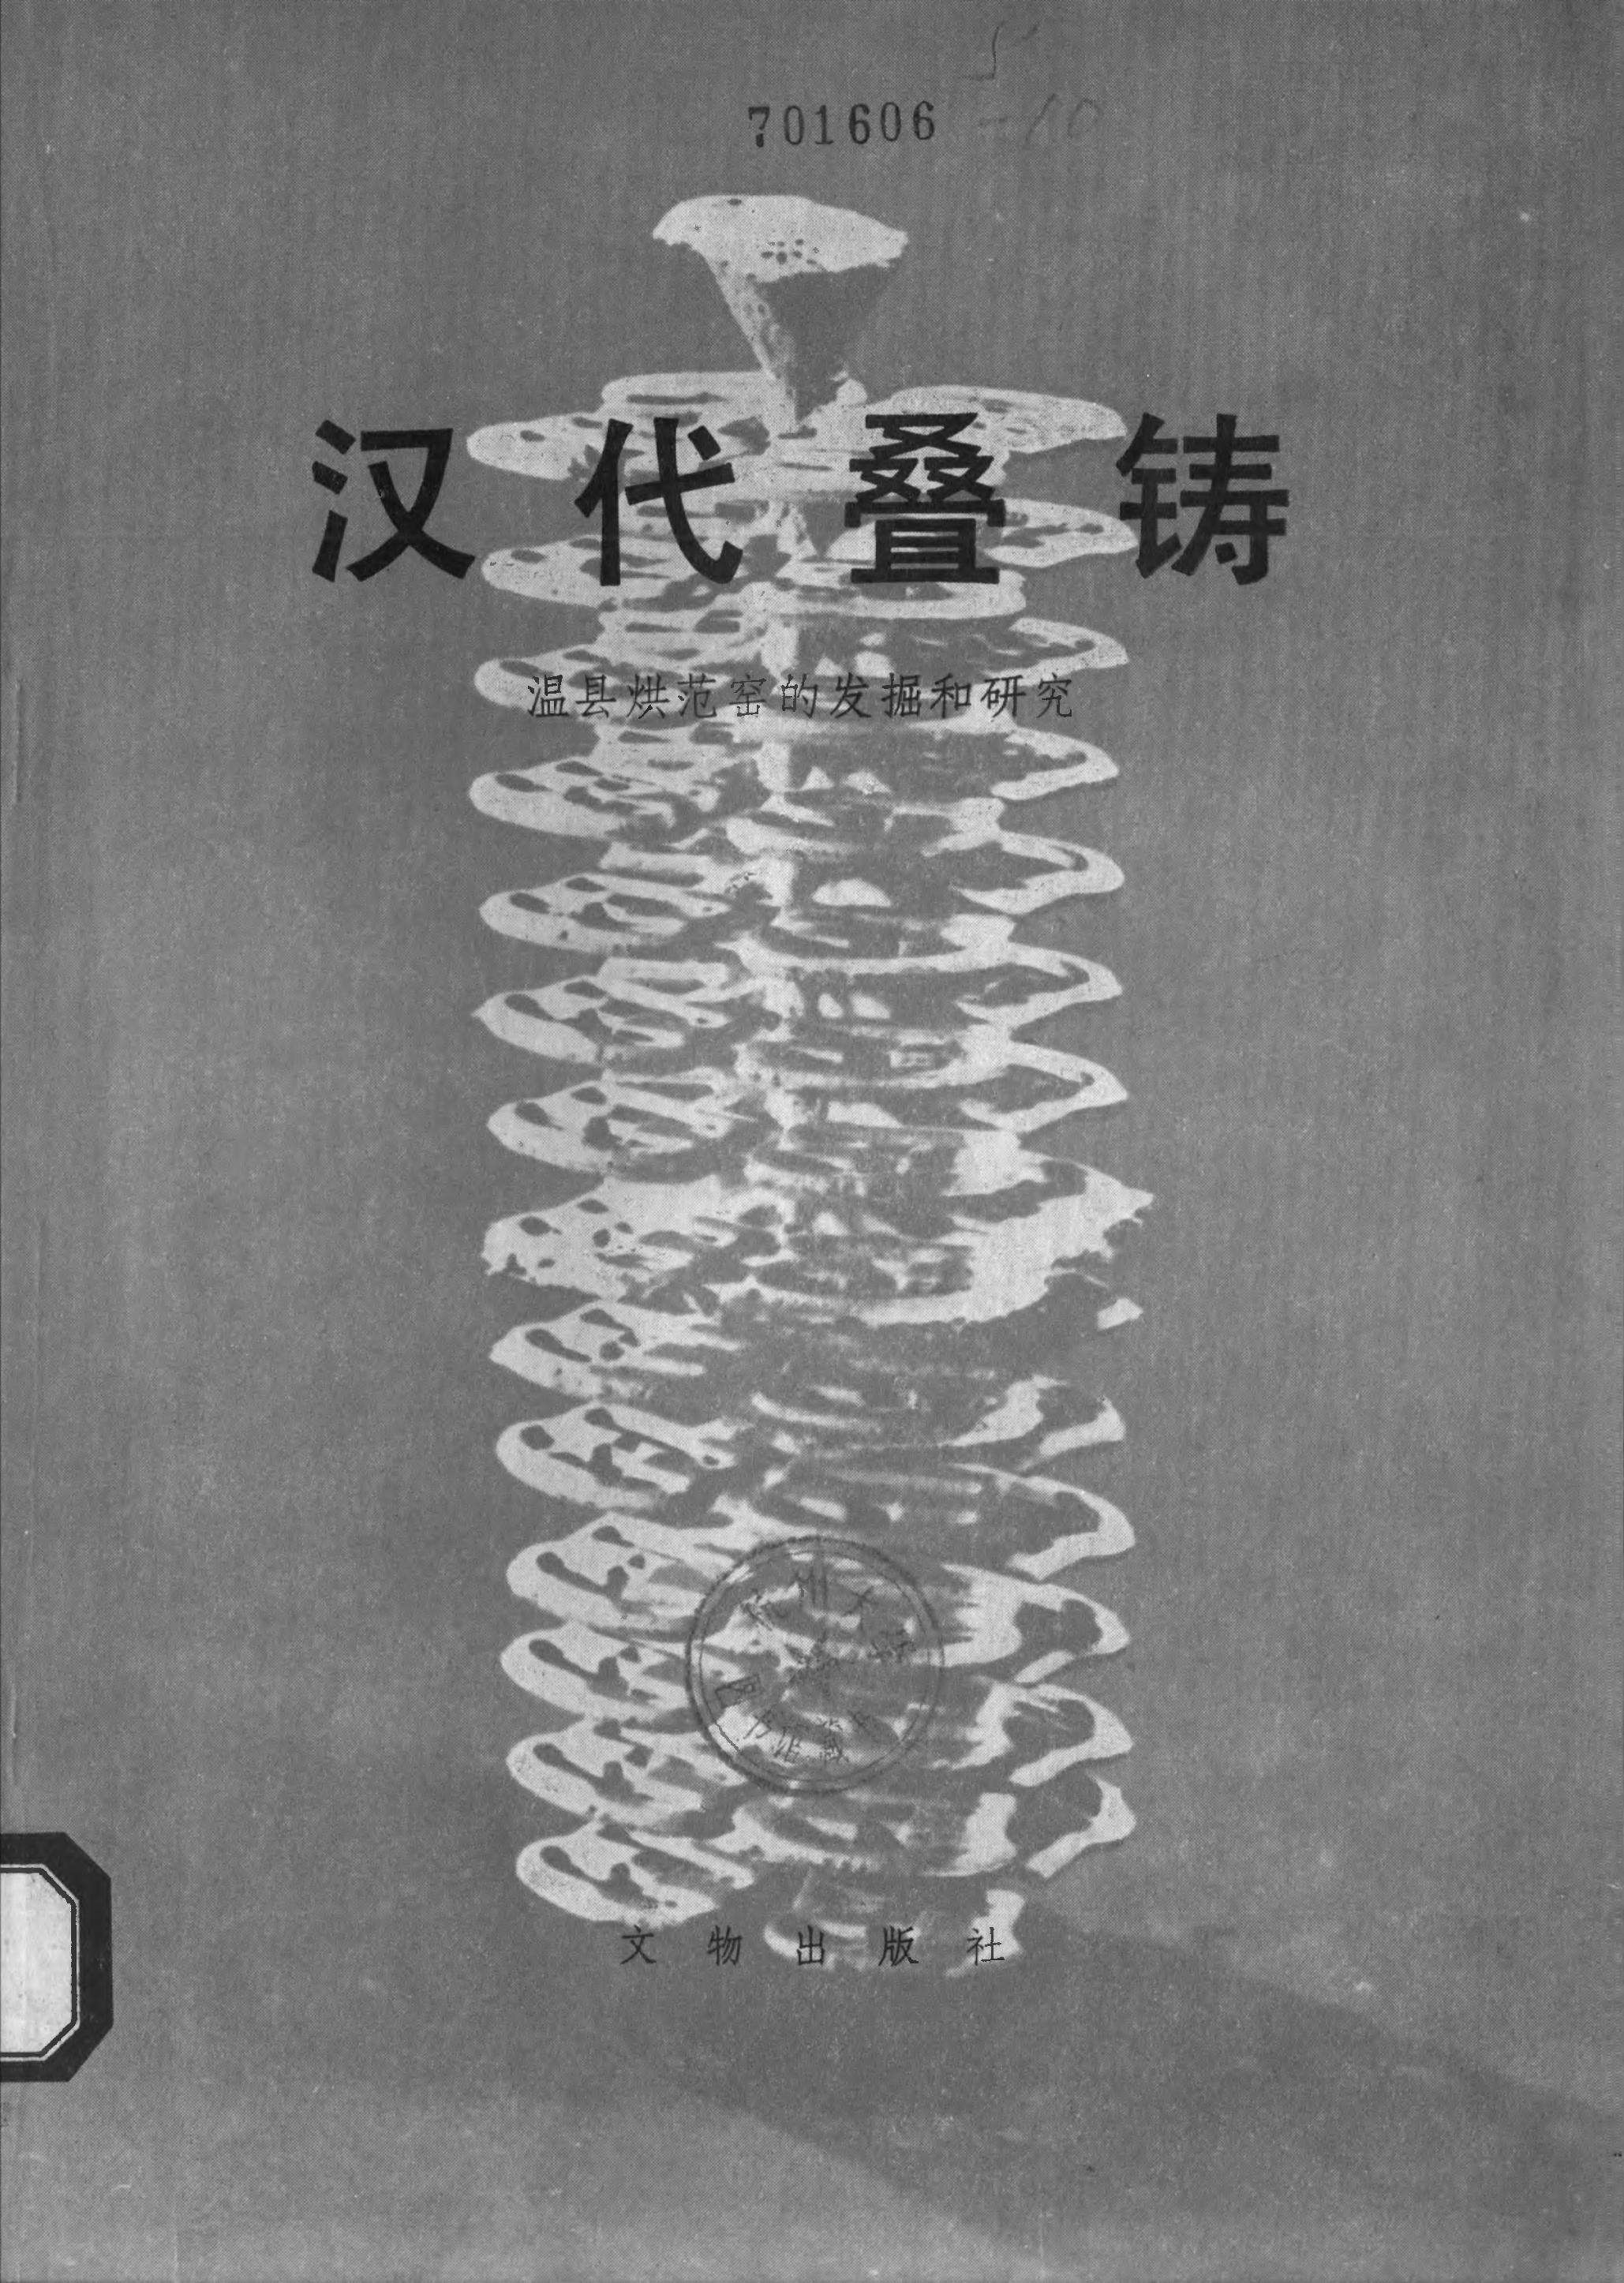 701606
10
汉代叠铸
温县烘范窑的发掘和研究
文物出版社
杭州大学
图书馆藏书